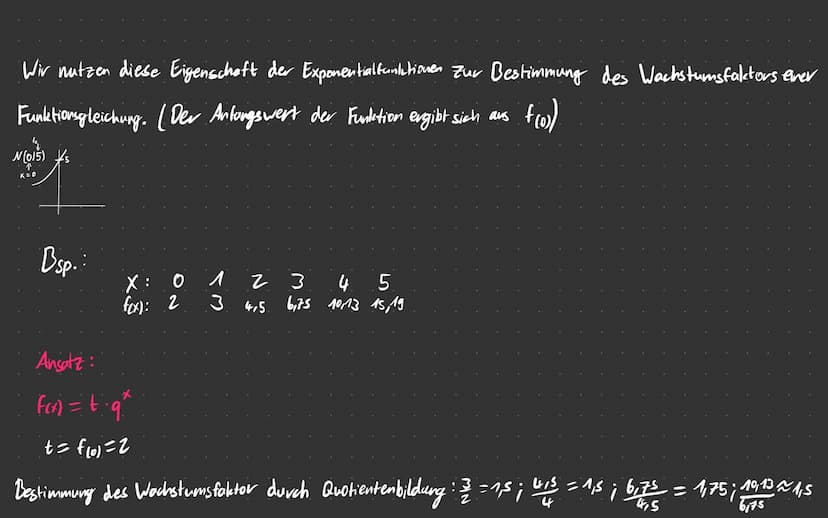 Wir nutzen diese Eigenschaft der Exponentialfunktionen zur Bestimmung des Wachstumsfaktors einer
Funktionsgleichung. (Der Anfangswert der Funktion ergibt sich aus f(0))
N(0|5) 5
x=0
Bsp.:
x: 0 1 2 3 4 5
f(x): 2 3 4,5 6,75 10,13 15,19
Ansatz:
f(x) = t · q^x
t = f(0) = 2
Bestimmung des Wachstumsfaktor durch Quotientenbildung: 3/2 = 1,5 ; 4,5/4 = 1,5 ; 6,75/4,5 = 1,75 ; 10,13/6,75 ≈ 1,5